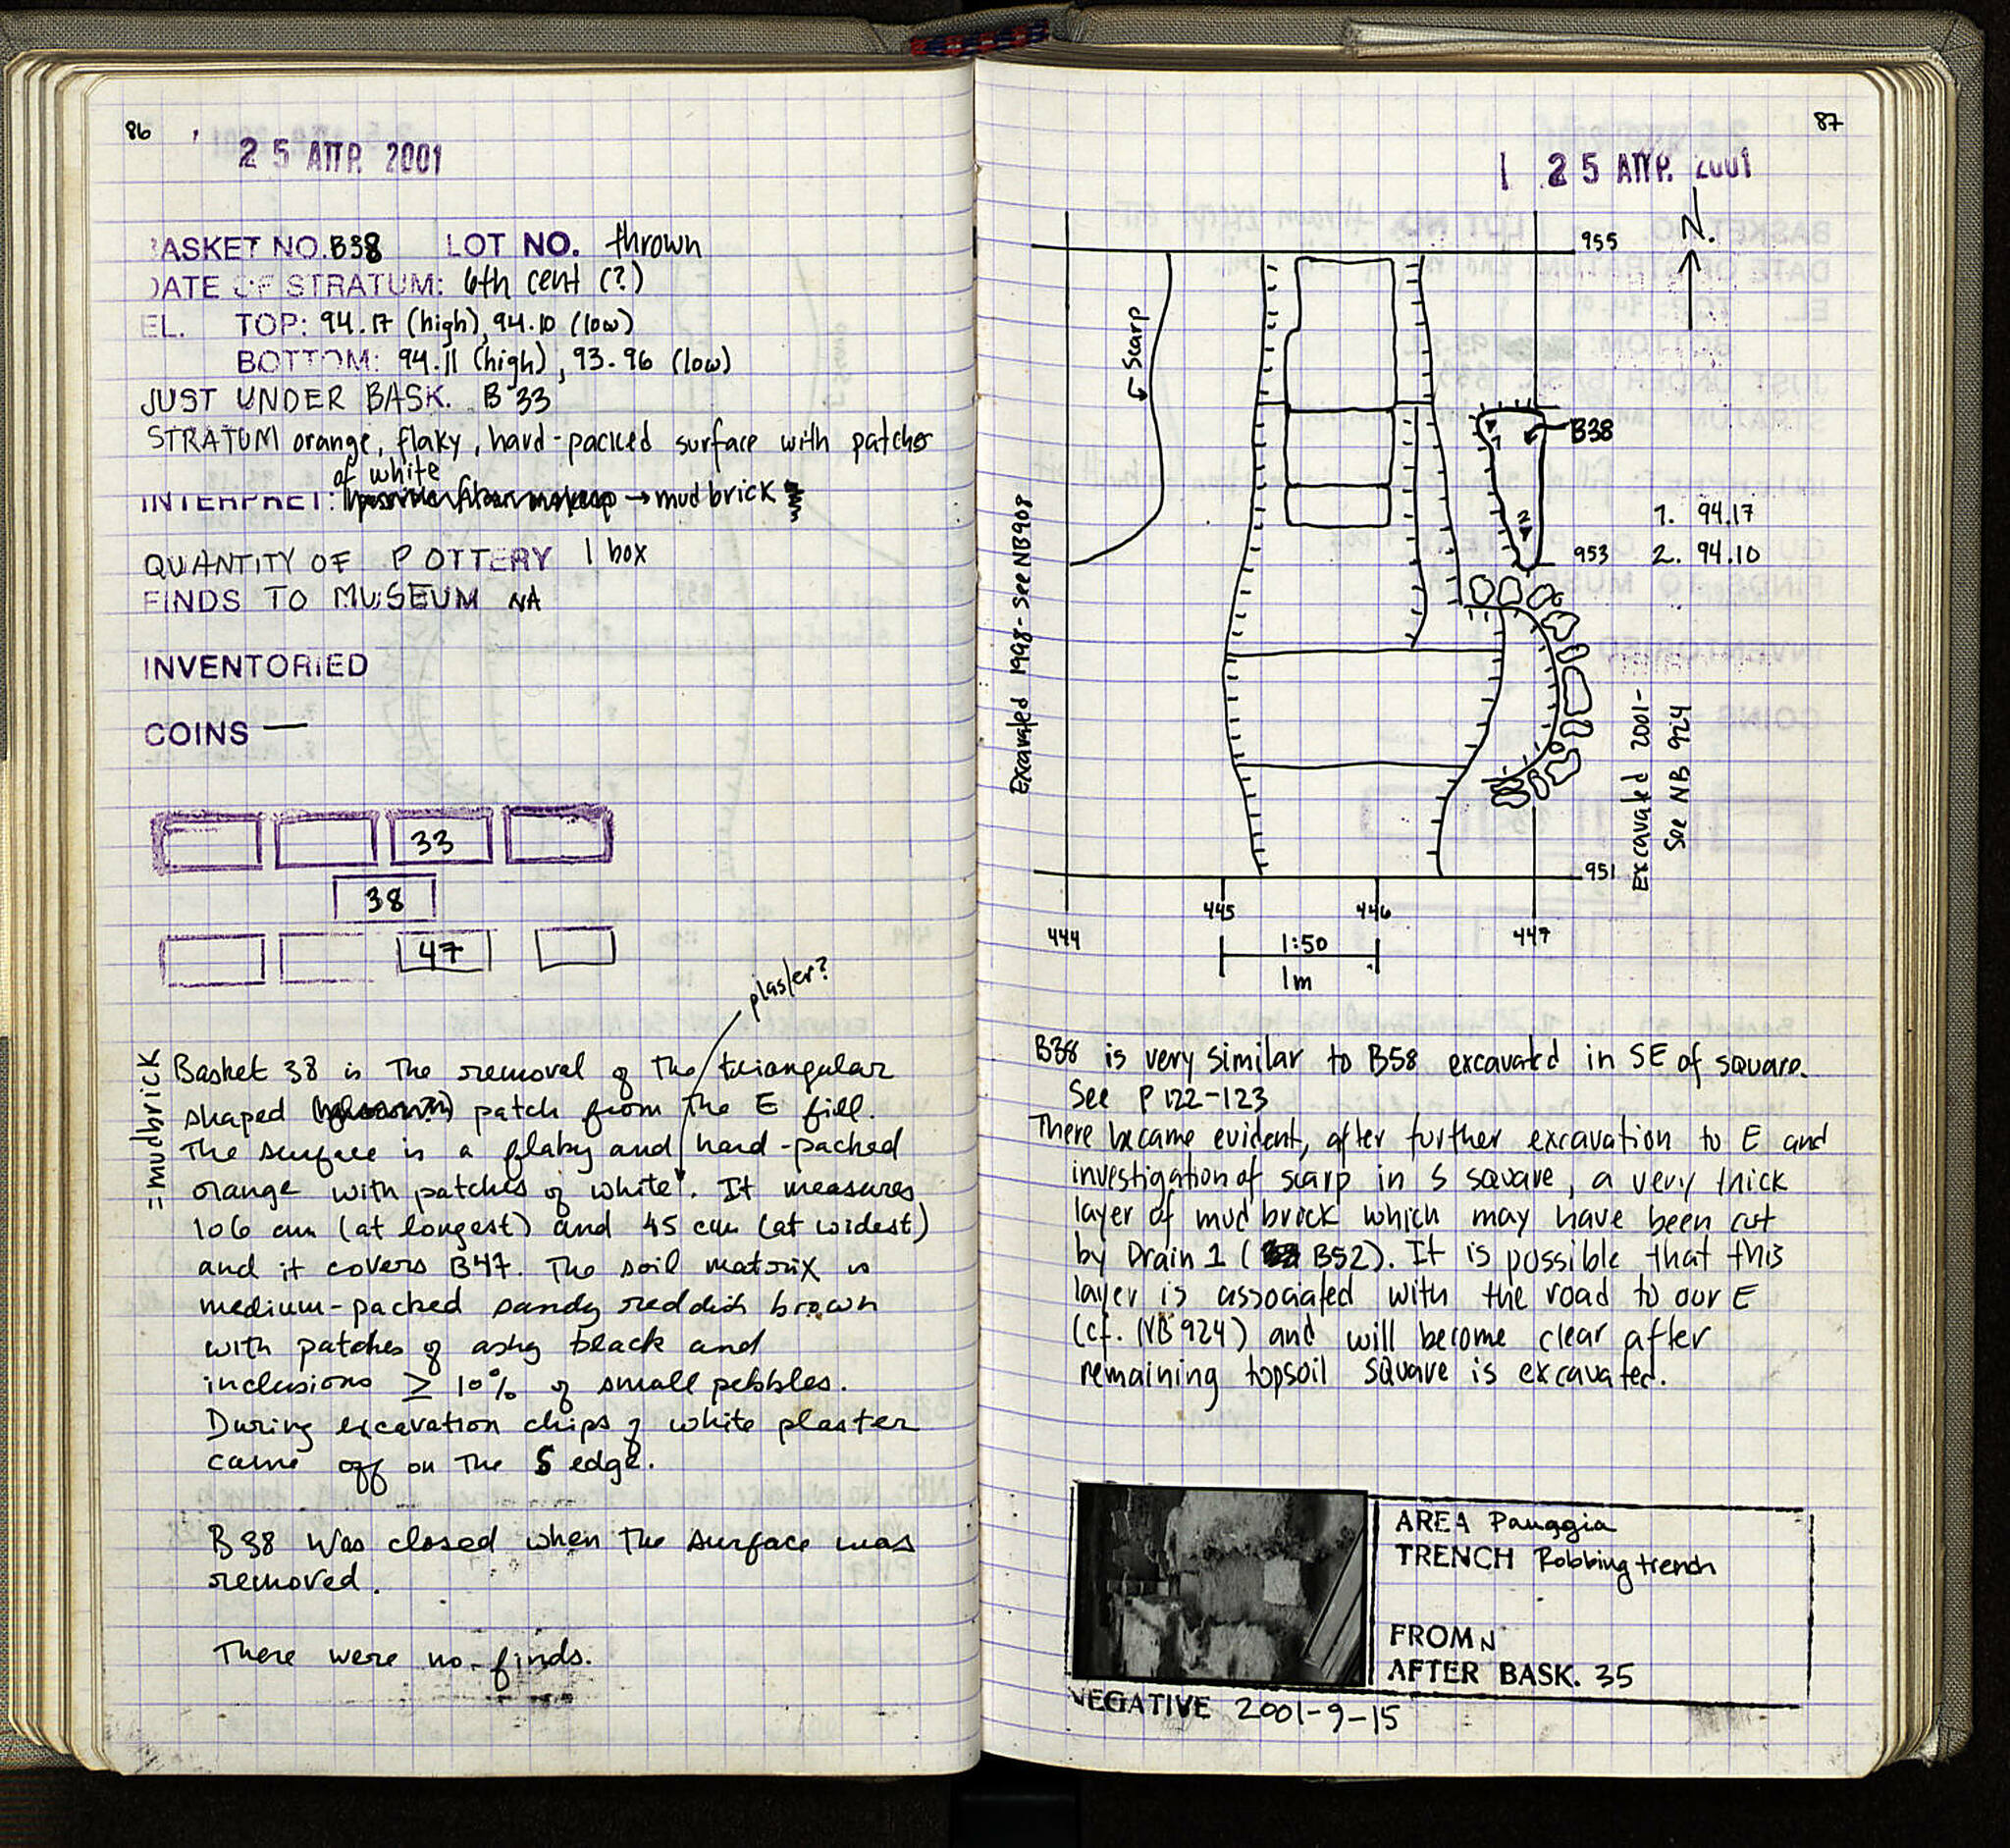 86
25 ΑΠΡ. 2001
BASKET NO. B38 LOT NO. thrown
DATE OF STRATUM: 6th cent (?)
EL. TOP: 94.17 (high), 94.10 (low)
BOTTOM: 94.11 (high), 93.96 (low)
JUST UNDER BASK. B 33
STRATUM orange, flaky, hard-packed surface with patches
of white
INTERPRET: → mudbrick
QUANTITY OF POTTERY 1 box
FINDS TO MUSEUM NA
INVENTORIED
COINS —
33
38
47
plaster?
= mudbrick
Basket 38 is the removal of the triangular
shaped patch from the E fill.
The surface is a flaky and hard-packed
orange with patches of white. It measures
106 cm (at longest) and 45 cm (at widest)
and it covers B47. The soil matrix is
medium-packed sandy reddish brown
with patches of ashy black and
inclusions ≥ 10% of small pebbles.
During excavation chips of white plaster
came off on the S edge.
B 38 was closed when the surface was
removed.
There were no finds.
87
25 ΑΠΡ. 2001
N.
955
Scarp
B38
1
2
1. 94.17
2. 94.10
953
Excavated 1998 - see NB908
Excavated 2001-
See NB 924
951
445
446
444
447
1:50
1m
B38 is very similar to B58 excavated in SE of square.
See P 122-123
There became evident, after further excavation to E and
investigation of scarp in S square, a very thick
layer of mud brick which may have been cut
by Drain 1 (B52). It is possible that this
layer is associated with the road to our E
(cf. NB 924) and will become clear after
remaining topsoil square is excavated.
AREA Panaggia
TRENCH Robbing trench
FROM N
AFTER BASK. 35
NEGATIVE 2001-9-15